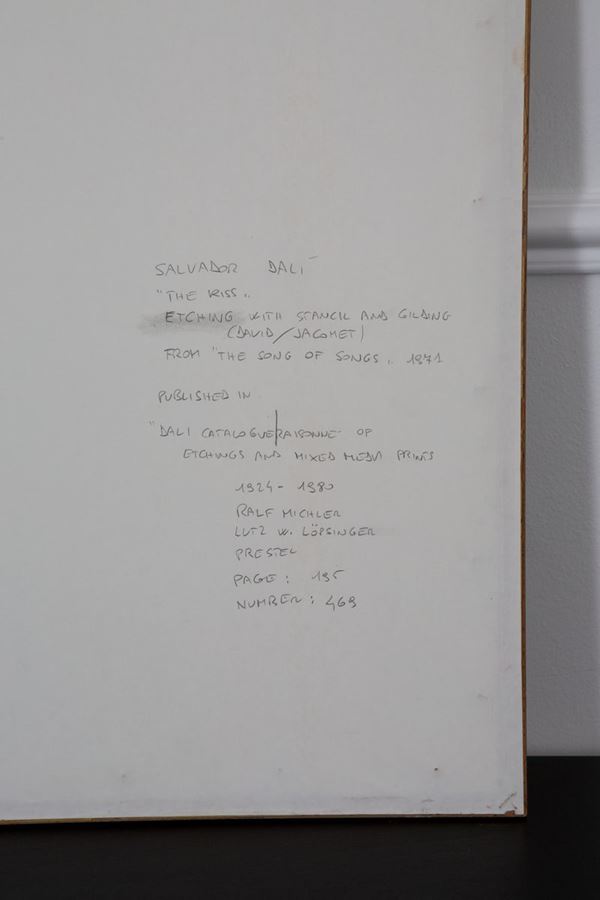 SALVADOR DALI
"THE KISS"
ETCHING WITH STANCIL AND GILDING
(DAVID / JACOMET)
FROM "THE SONG OF SONGS" 1971
PUBLISHED IN
"DALI CATALOGUE RAISONNE OF
ETCHINGS AND MIXED MEDIA PRINTS
1924 - 1980
RALF MICHLER
LUTZ W. LÖPSINGER
PRESTEL
PAGE : 195
NUMBER : 469